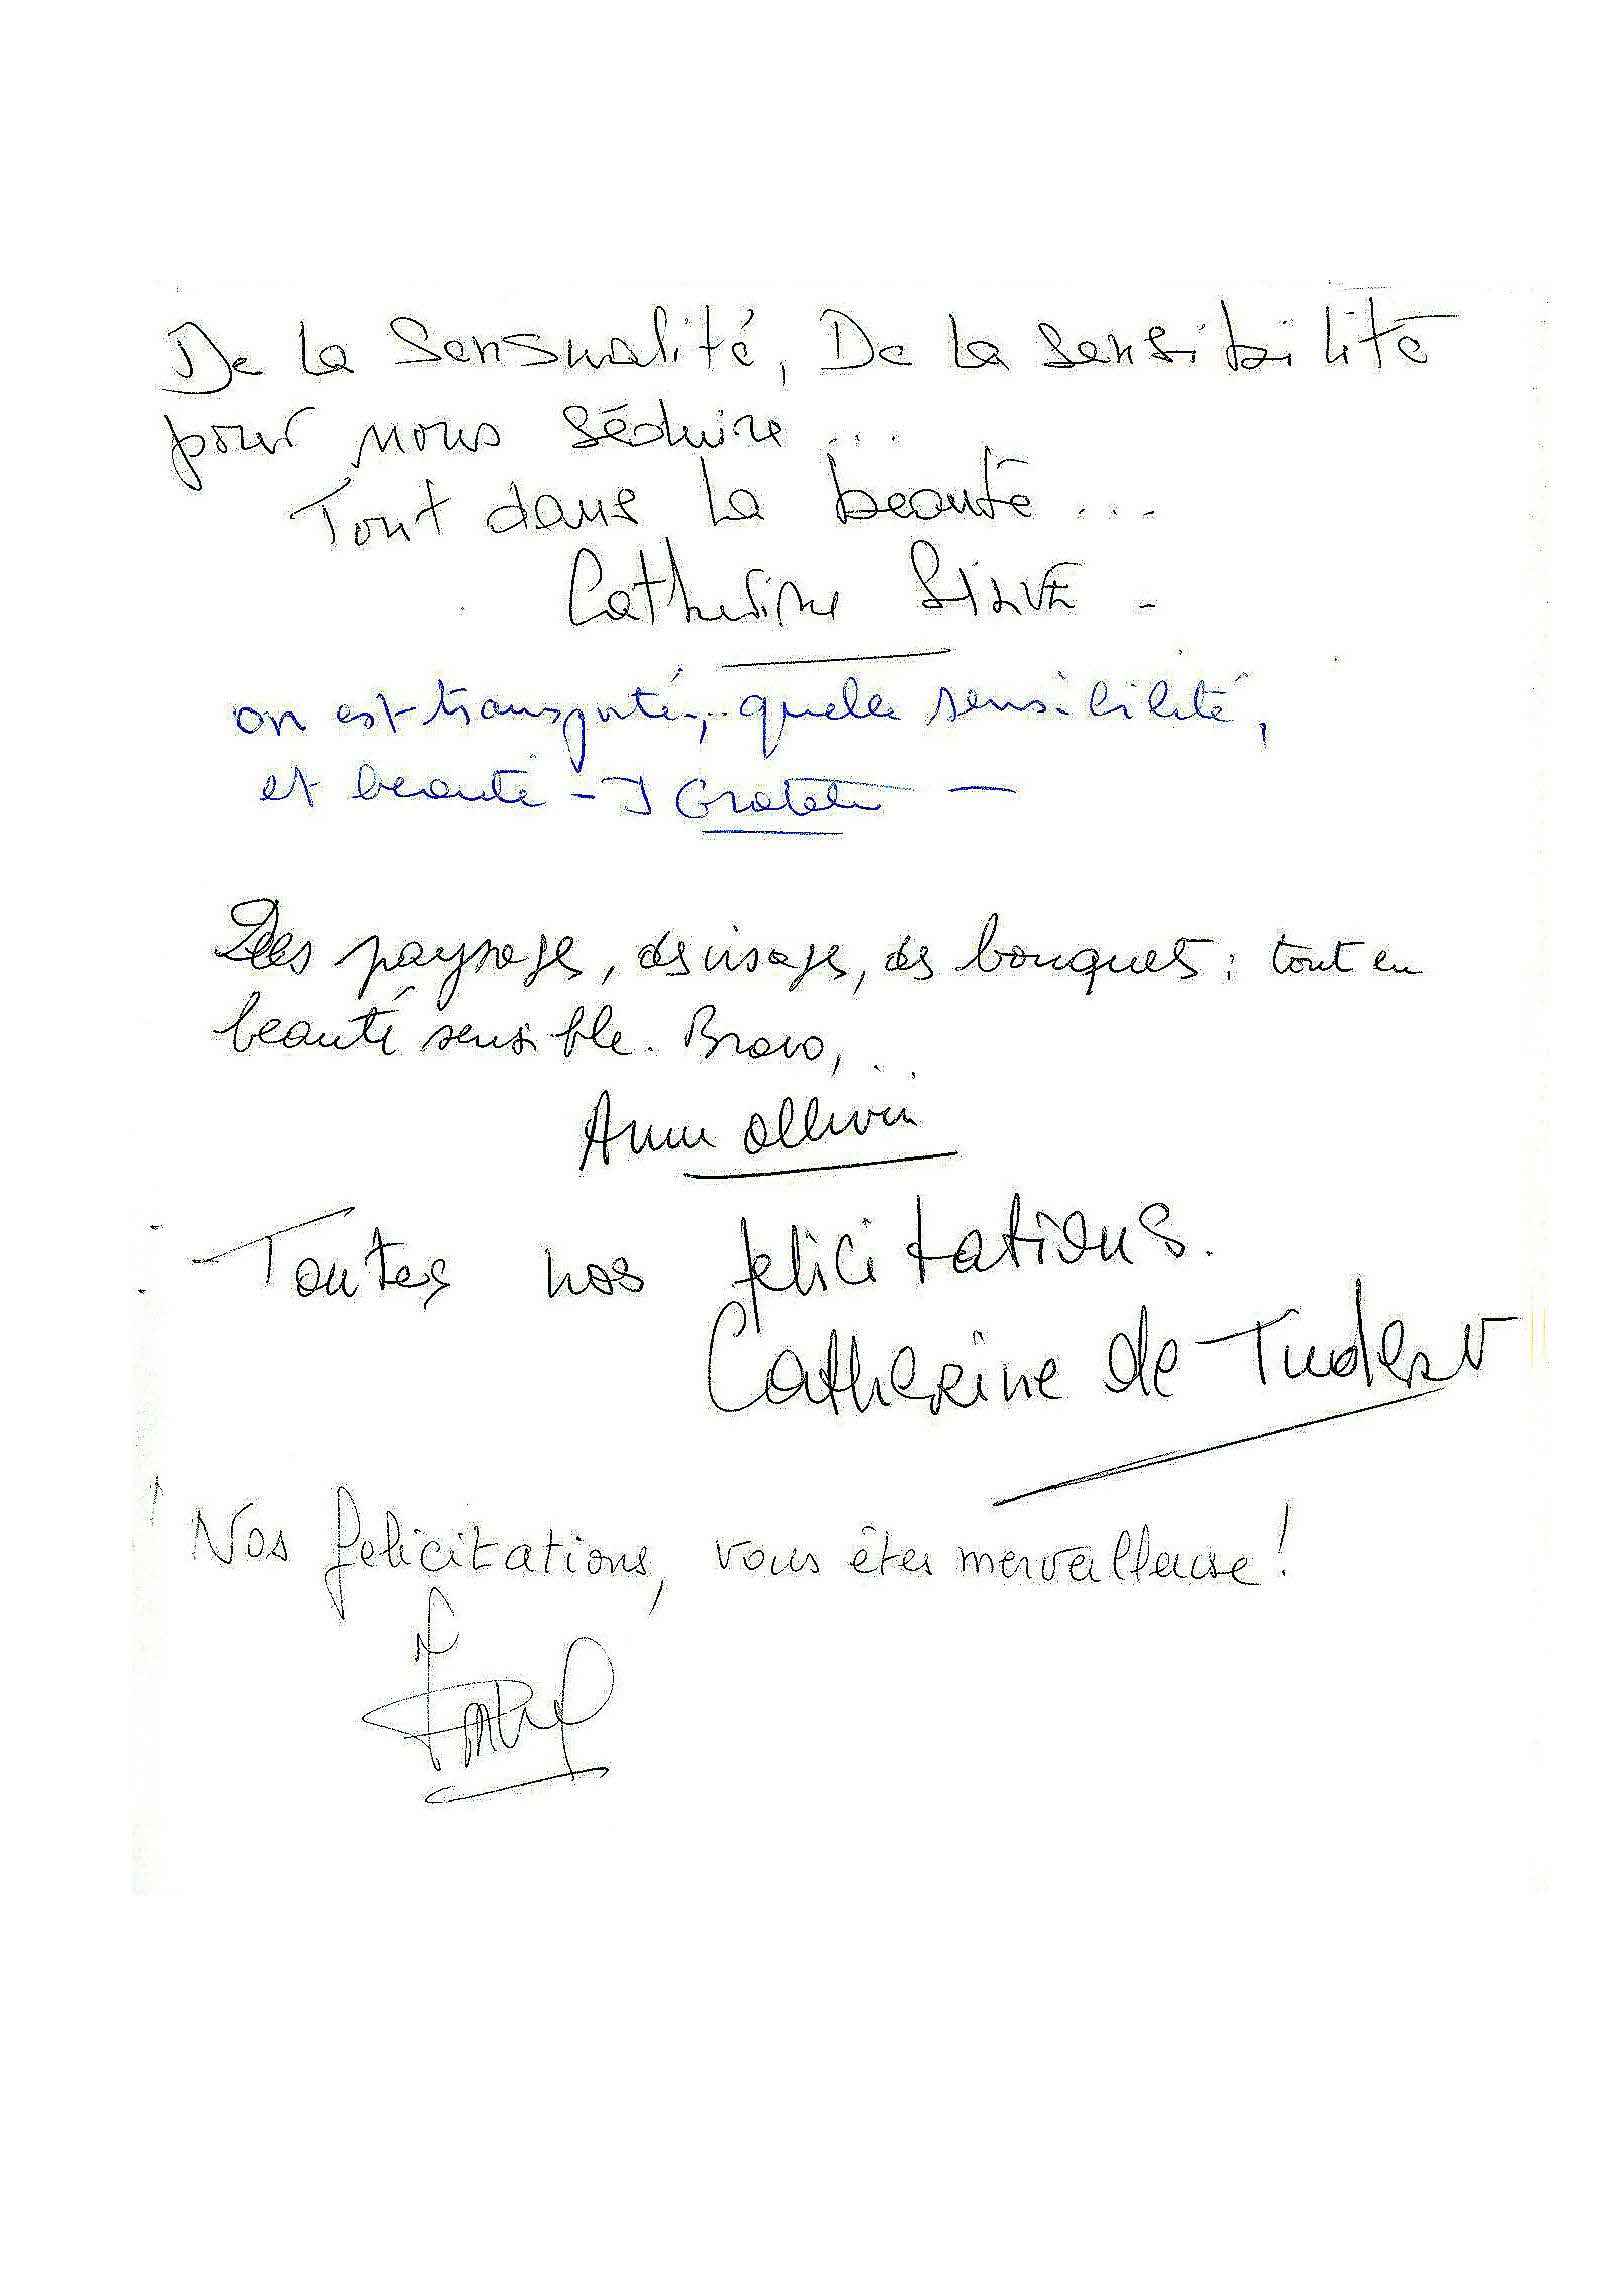 De la Sensualité, De la sensibilité
pour nous séduire ...
Tout dans la beauté ...
Catherine SILVE -
on est transporté, ... quelle sensibilité,
et beauté - J
Des paysages, des visages, des bouquets : tout en
beauté sensible. Bravo, ...
Anne Ollivin
Toutes nos felicitations.
Catherine de Tudert
Nos felicitations, vous êtes merveilleuse !